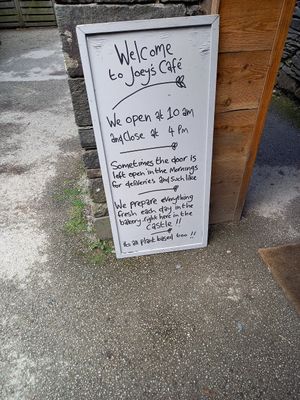 Welcome
to Joey's Café
We open at 10 am
and Close at 4 Pm
Sometimes the door is
left open in the Mornings
for deliveries and Such like
We prepare everything
fresh each day in the
bakery right here in the
Castle !!
its all plant based too !!